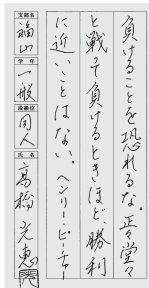 負けることを恐れるな。正々堂々
と戦って負けるときほど、勝利
に近いことはない。ヘンリー・ピーチャー
支部名
福山
学年
一般
段級位
同人
氏名
高橋光恵